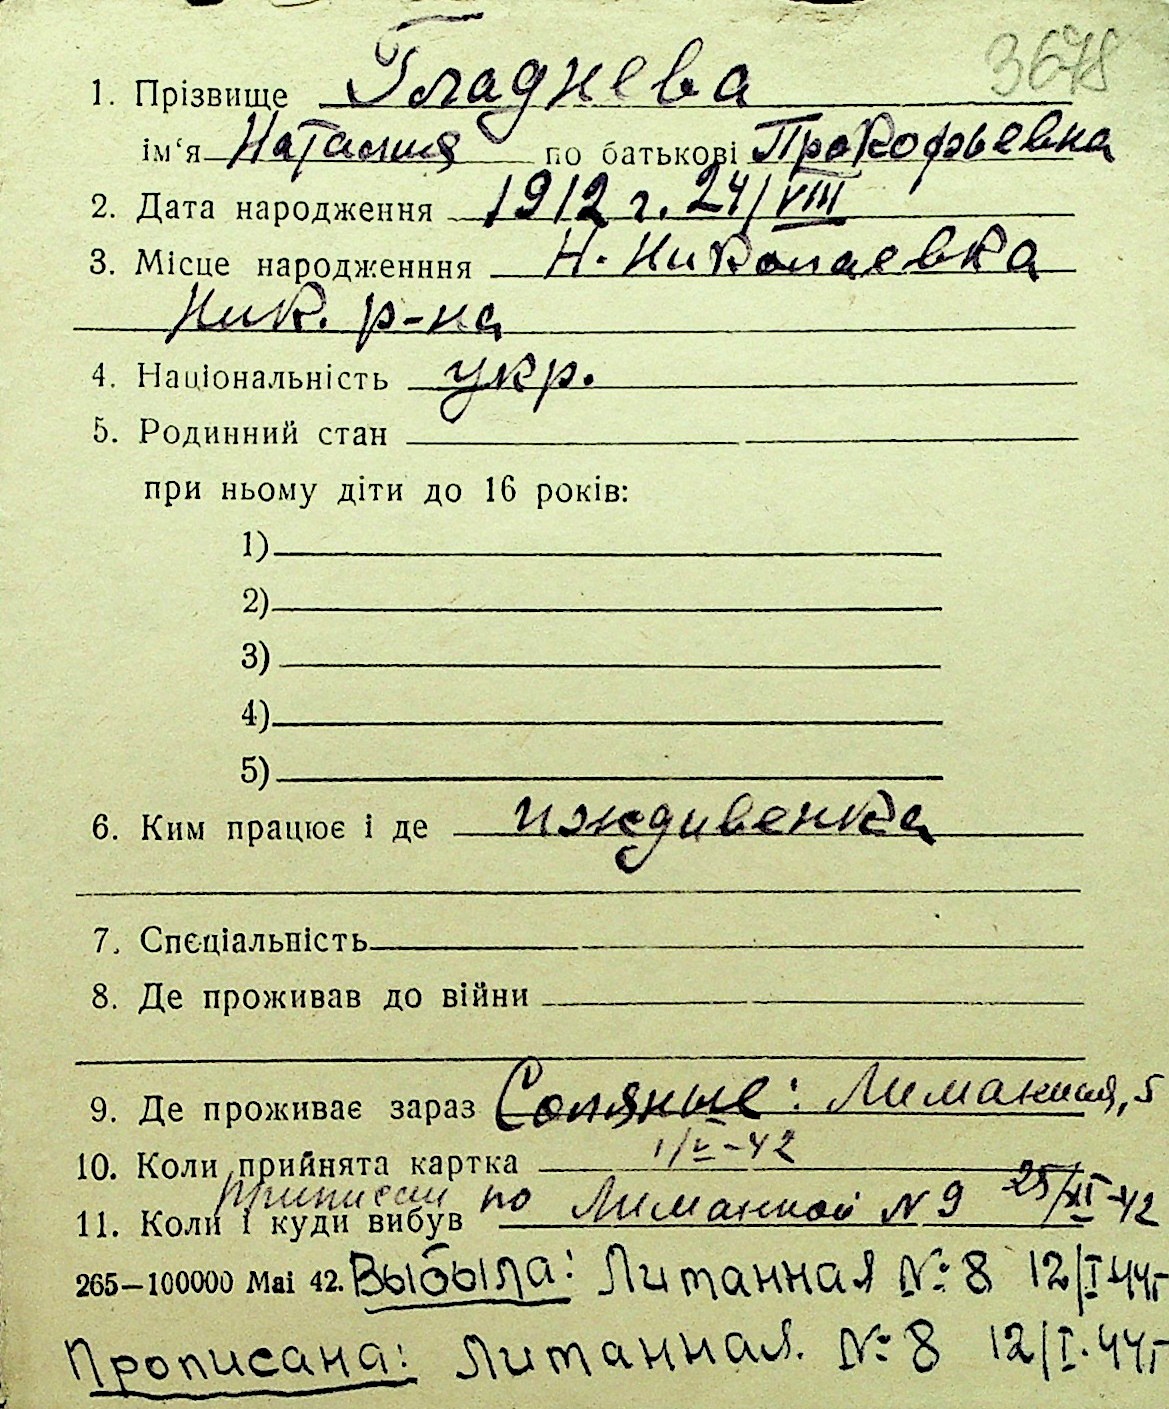 3678
1. Прізвище Гладнева
ім‘я Наталия по батькові Прокофьевна
2. Дата народження 1912 г. 24/VIII
3. Місце народженння Н. Николаевка
Ник. р-на
4. Національність укр.
5. Родинний стан
при ньому діти до 16 років:
1)
2)
3)
4)
5)
6. Ким працює і де иждивенка
7. Спєціальність
8. Де проживав до війни
9. Де проживає зараз Соляные: 5
10. Коли прийнята картка 1/V-42
по Лиманной N 9 25/XI-42
11. Коли і куди вибув
265—100000 Маі 42. Выбыла: Литанная №: 8 12/I-44г
Прописана: Литанная. №: 8 12/I-44г